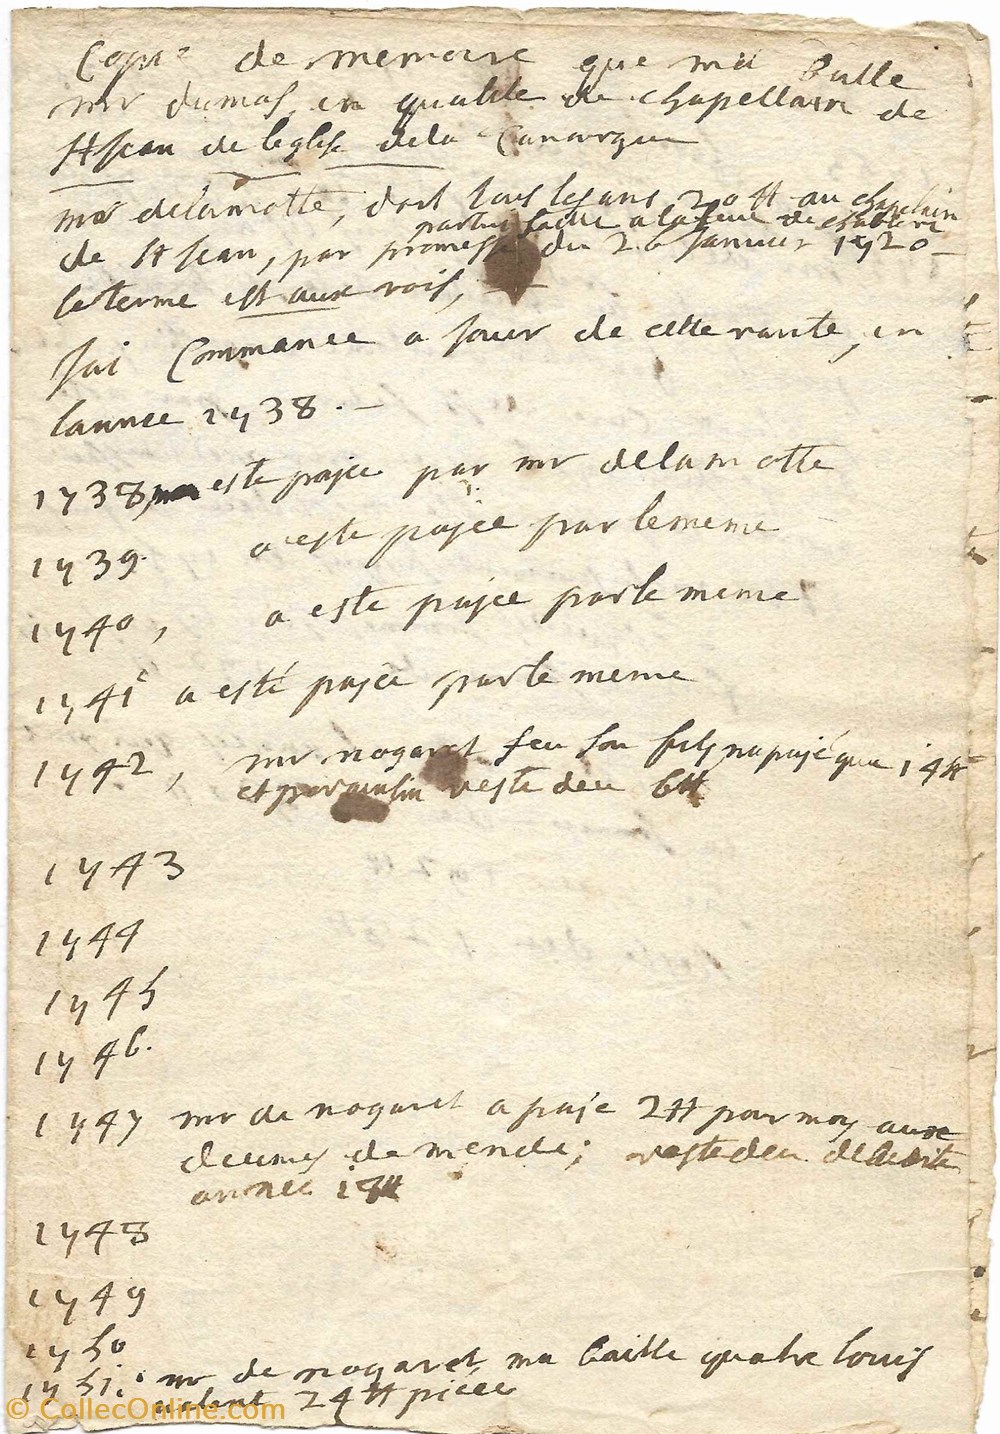 Copie de memoire que ma Baille
mr dumas, en qualité de chapellain de
St Jean de leglise de la Canourgue
mr delamotte, doit tous les ans 20 tt au chapelain
partus faitte a la de
de St Jean, par promesse du 20 Janvier 1720
le terme est aux rois,
Jai Commance a Jouir de cette rante, en
lannee 1738.
1738, a este pajee par mr delamotte
1739. a este pajee par le meme
1740, a este pajee par le meme
1741 a esté pajee par le meme
1742, mr nogaret feu son fils na pajé que 14 tt
et par ainsin reste deu 6 tt
1743
1744
1745
1746.
1747 mr de nogaret a paje 2 tt pour moy aux
de mende; reste deu de ladite
annee 18 tt
1748
1749
1750
1751. mr de nogaret ma baille quatre louis
valent 24 tt piece
© CollecOnline.com